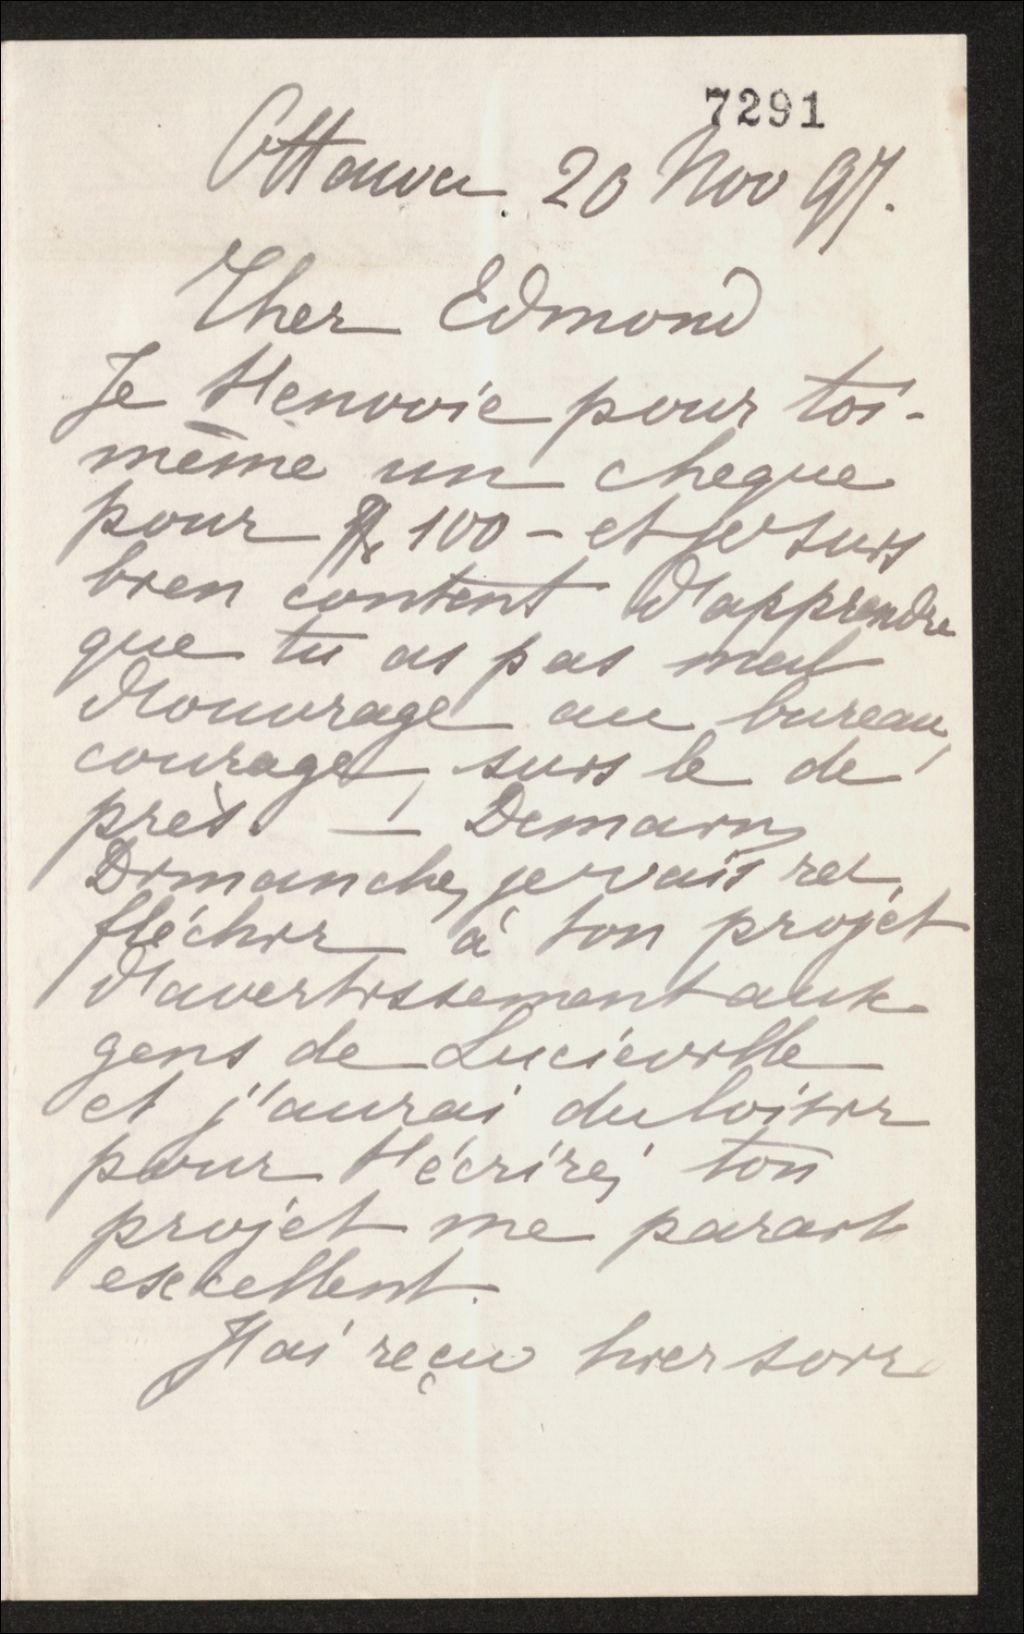 7291
Ottawa. 20 Nov 97.
Cher Edmond
Je t'envoie pour toi-
même un cheque
pour $ 100 - et je suis
bien content d'apprendre
que tu as pas mal
d'ouvrage au bureau,
courage, suis le de
près. — Demain,
Dimanche, je vais ré-
fléchir à ton projet
d'avertissement aux
gens de Lucieville
et j'aurai du loisir
pour t'écrire; ton
projet me parait
excellent.
J'ai reçu hier soir